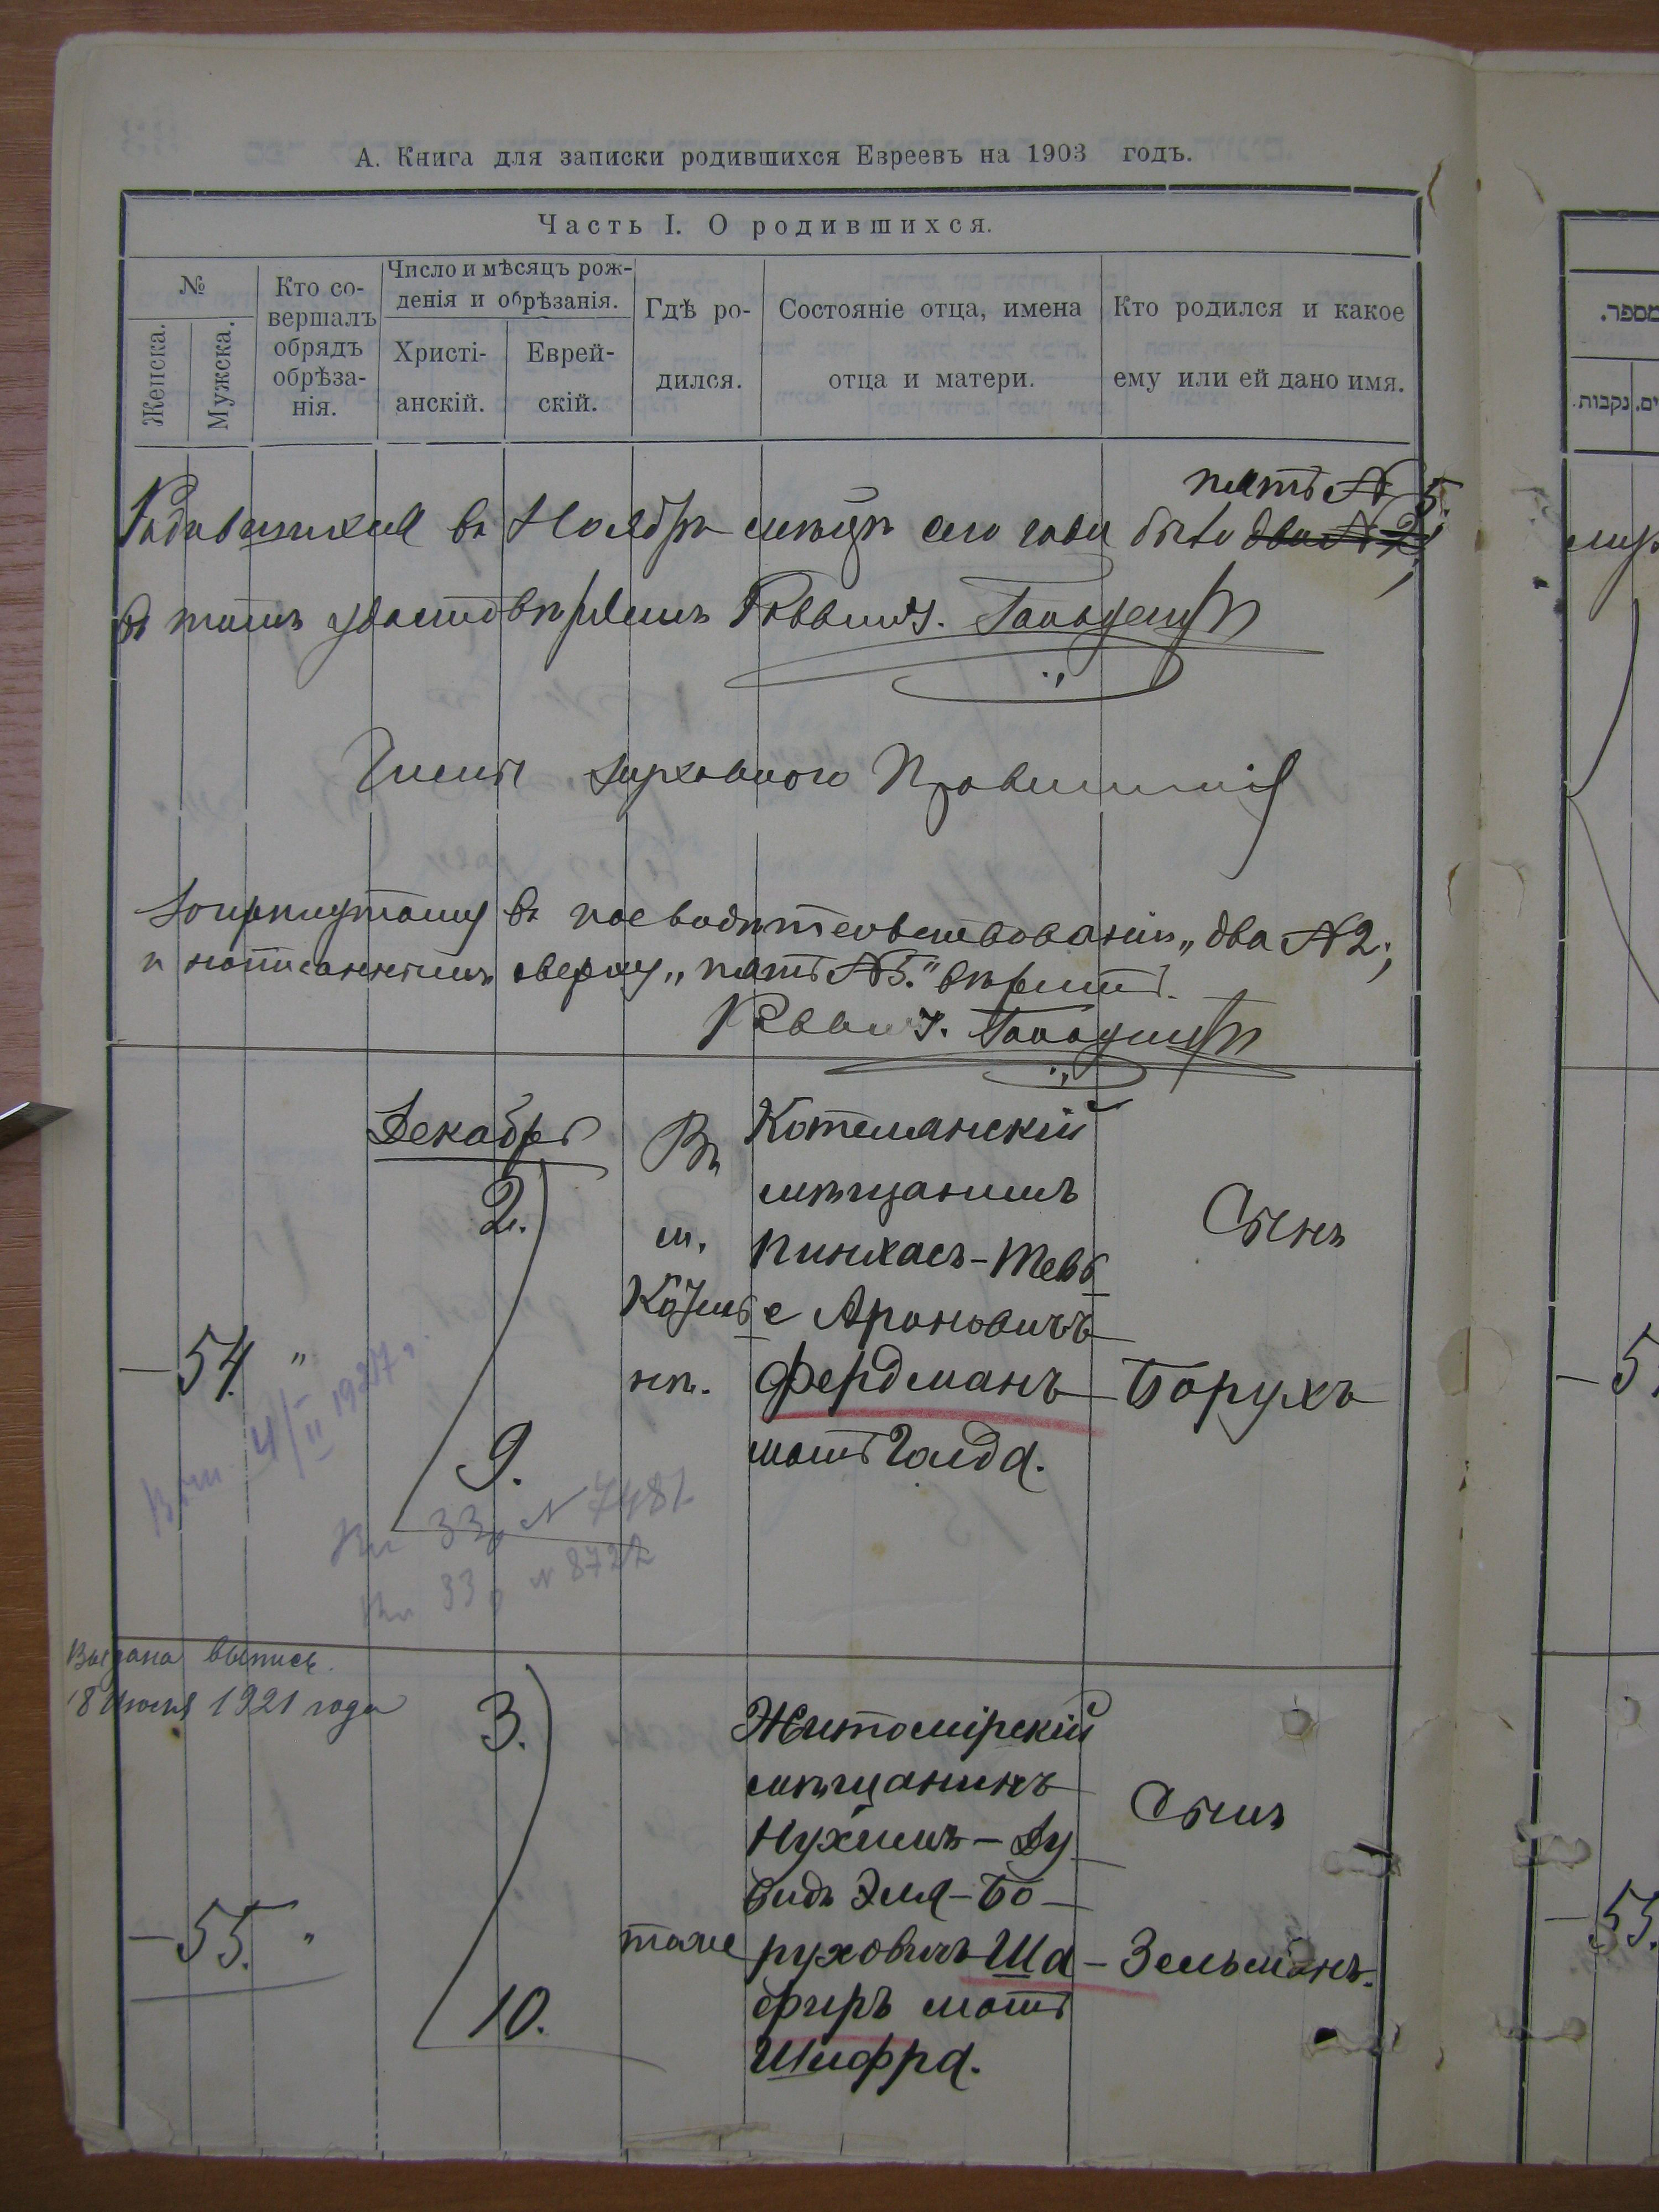 А. Книга для записки родившихся Евреевъ на 1903 годъ.
Часть I. О родившихся.
№
Женска.
Мужска.
Кто со-
вершалъ
обрядъ
обрѣза-
нія.
Число и мѣсяцъ рож-
денія и обрѣзанія.
Христі-
анскій.
Еврей-
скій.
Гдѣ ро-
дился.
Состояніе отца, имена
отца и матери.
Кто родился и какое
ему или ей дано имя.
пять № 5.
Родившихся въ Ноябрѣ мѣсяцѣ сего года было два № 2;
въ томъ удостовѣряемъ Раввинъ.
Члены духовного Правленія
Зачеркнутому въ послѣдующемъ „два № 2;
и написанному сверху „пять № 5." вѣрить.
Раввинъ.
Декабрь
54. "
2.
9.
Въ
м.
нѣ.
мѣщанинъ
Пинхасъ-Тевь
е Ароновичъ
Фердманъ
мать Голда.
Сынъ
Борухъ
4/II 1927 г.
33 № 7481
33 № 8722
Выдана выпись.
18 Июня 1921 года
55. "
3.
10.
тоже
Житомірскій
мѣщанинъ
Нухимъ-Ду
видъ Эля-Бо-
руховичъ Ша-
фиръ мать
Шифра.
Сынъ
Зельманъ.
מספר.
נקבות.